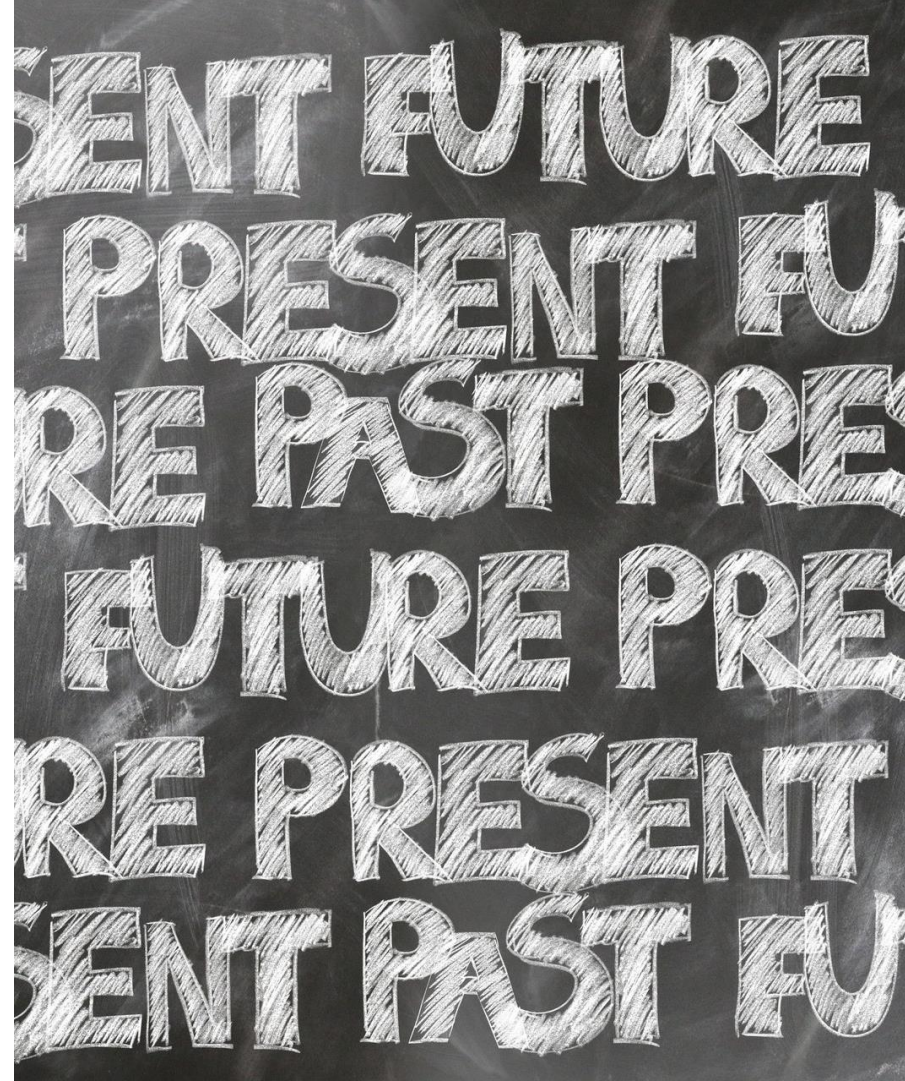 SENT FUTURE
T PRESENT FU
RE PAST PRES
T FUTURE PRES
RE PRESENT
SENT PAST FU